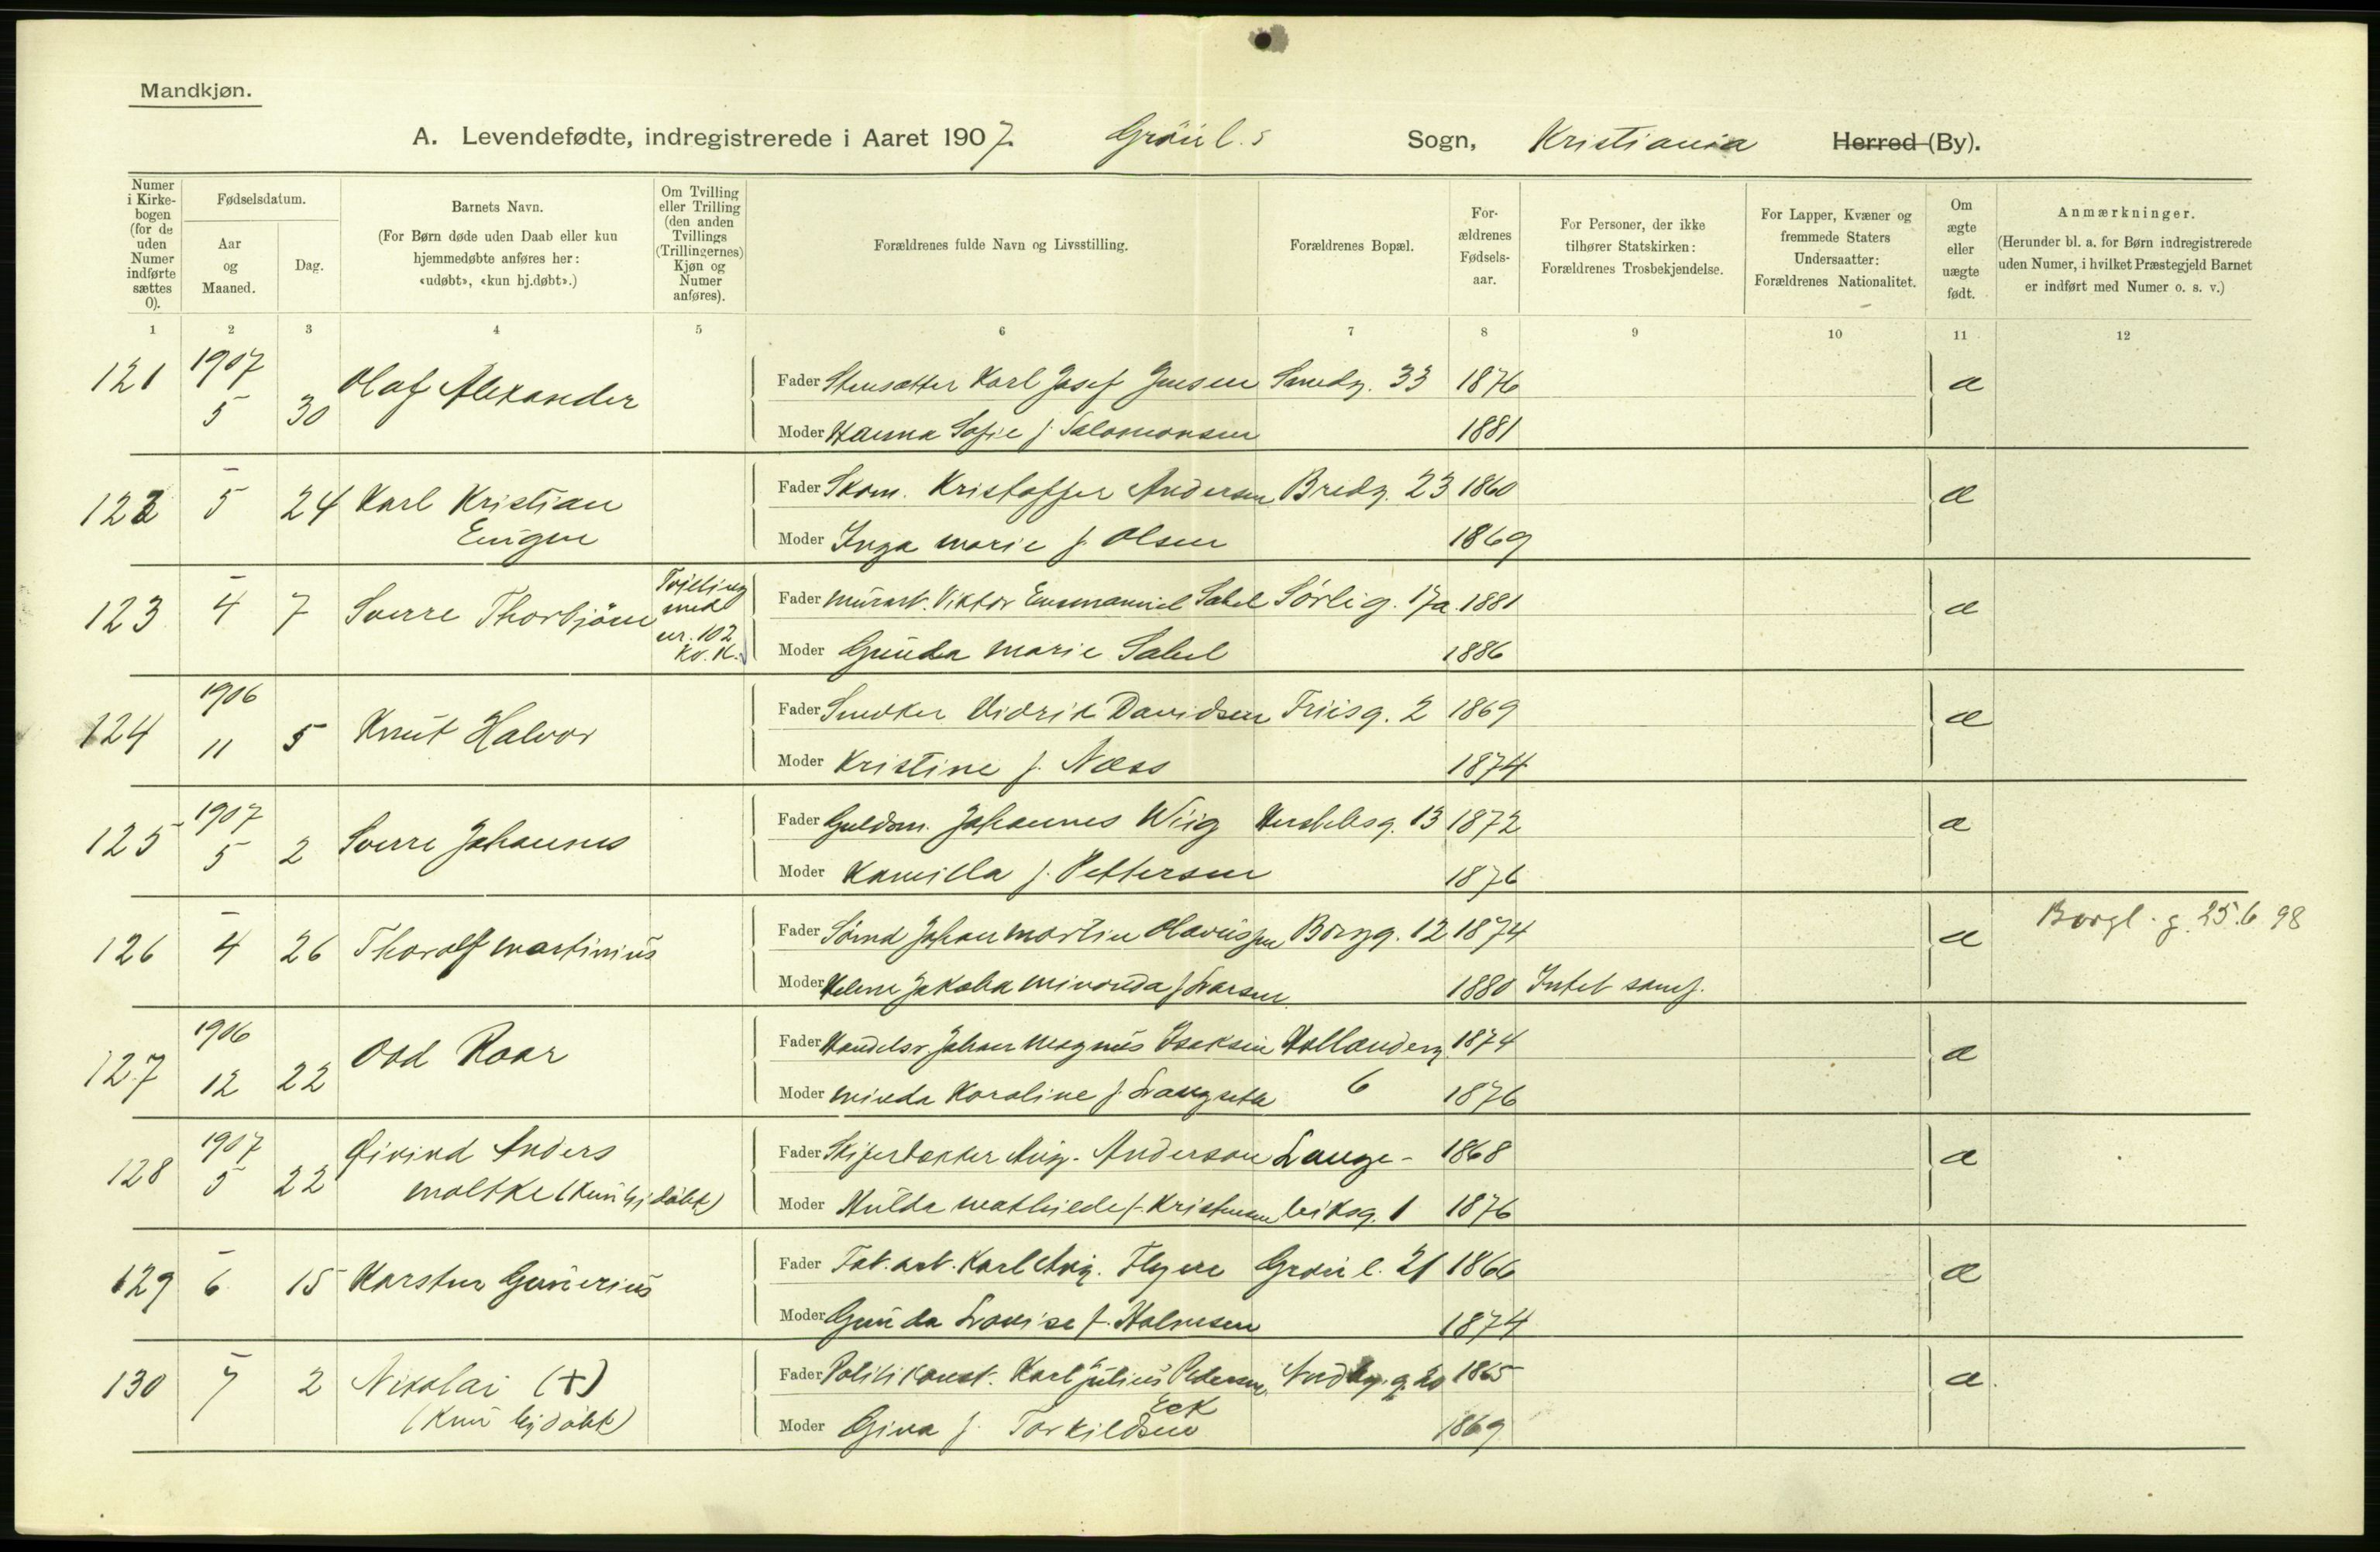 Mandkjøn.
A. Levendefødte, indregistrerede i Aaret 1907. Grønl.s Sogn, Kristiania Herred (By).
Numer i Kirkebogen (for de uden Numer indførte sættes 0).
Fødselsdatum.
Aar og Maaned.
Dag.
Barnets Navn.
(For Børn døde uden Daab eller kun hjemmedøbte anføres her: «udøbt», «kun hj.døbt».)
Om Tvilling eller Trilling (den anden Tvillings (Trillingernes) Kjøn og Numer anføres).
Forældrenes fulde Navn og Livsstilling.
Forældrenes Bopæl.
Forældrenes Fødselsaar.
For Personer, der ikke tilhører Statskirken: Forældrenes Trosbekjendelse.
For Lapper, Kvæner og fremmede Staters Undersaatter: Forældrenes Nationalitet.
Om ægte eller uægte født.
Anmærkninger.
(Herunder bl. a. for Børn indregistrerede uden Numer, i hvilket Præstegjeld Barnet er indført med Numer o. s. v.)
1 2 3 4 5 6 7 8 9 10 11 12
121 1907 5 30 Olaf Alexander Fader Stensætter Karl Josef Jensen Smedg. 33 1876 æ
Moder Hanna Sofie f. Salomonsen 1881
122 – 5 24 Karl Kristian Fader Skom. Kristoffer Andersen Bredg. 23 1860 æ
Eugen Moder Inga Marie f. Olsen 1869
123 – 4 7 Sverre Thorbjörn Tvilling med nr. 102 Kv.K. Fader Murarb. Viktor Emmanuel Sahl Sørlig. 17a 1881 æ
Moder Gunda Marie Sahl 1886
124 1906 11 5 Knut Halvor Fader Snedker Didrik Davidsen Friisg. 2 1869 æ
Moder Kristine f. Næss 1874
125 1907 5 2 Sverre Johannes Fader Guldsm. Johannes Wiig Herslebsg. 13 1872 æ
Moder Kamilla f. Pettersen 1876
126 – 4 26 Thorolf Martinius Fader Sömd Johan Martin Olaviussen Borgg. 12 1874 æ Borgl. g. 25.6 98
Moder Helene Jakoba Minonda f. Larsen 1880 Intet samf.
127 1906 12 22 Odd Roar Fader Handelsr. Johan Magnus Isaksen Hollenderg. 1874 æ
Moder Minda Karoline f. Langseth 6 1876
128 1907 5 22 Øivind Anders Fader Aug. Anderson Lange- 1868 æ
Moltke (kun hj.döbt) Moder Hulda Mathilde f. Kristensen leiksg. 1 1876
129 – 6 15 Karsten Gunerius Fader Fab.arb. Karl Aug. Flyere Grønl. 21 1866 æ
Moder Gunda Lovise f. Halvorsen 1874
130 – 7 2 Nikolai (+) Fader Politikonst. Karl Julius Pedersen 20 1865 æ
Eek
(kun hj.döbt) Moder Gina f. Torkildsen 1869